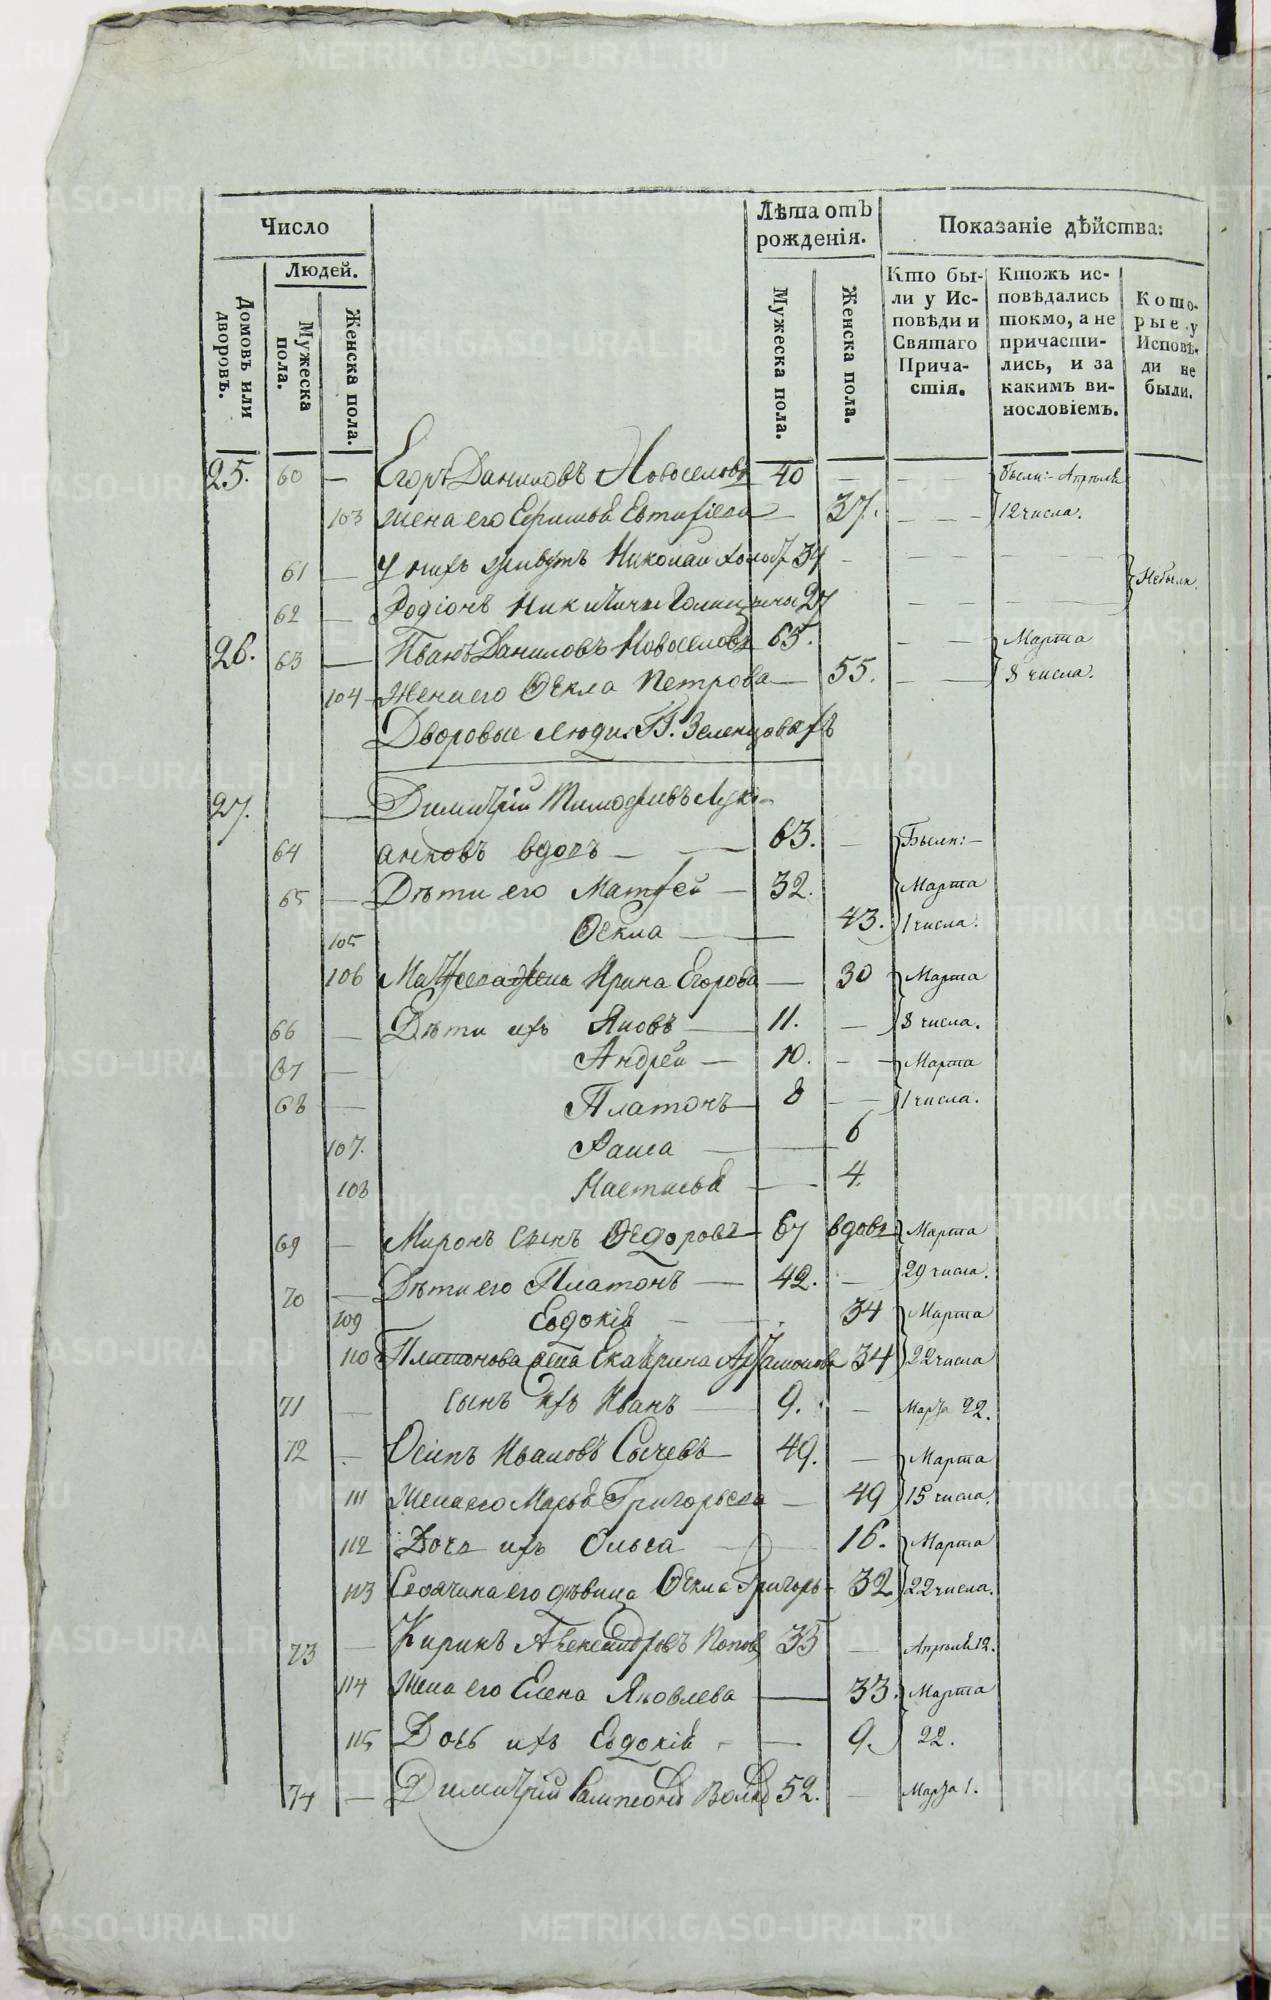 Число
Людей.
Домовъ или дворовъ.
Мужеска пола.
Женска пола.
Лѣта отъ рожденія.
Мужеска пола.
Женска пола.
Показаніе дѣйства:
Кто были у Исповѣди и Святаго Причастія.
Ктожъ исповѣдались токмо, а не причастились, и за какимъ винословіемъ.
Которые у Исповѣди не были.
25. 60 — Егоръ Даниловъ Новоселовъ 40 — — — были:- Апрѣля
103 жена его Ефимья Евтифіева — 37. — — 12 числа.
61 — у нихъ живутъ Николай 34 — — — — Небыли
62 — Родіонъ Никитинъ 27 — — —
26. 63 — Иванъ Даниловъ Новоселовъ 65. — — Марта
104 Жена его Ѳекла Петрова — 55. — — 8 числа.
Дворовые люди Г. Зеленцовыхъ
27. — Димитрій Тимофѣевъ Лукі-
64 анковъ вдовъ — — 63. — Были:-
65 — Дѣти его Матфей — 32. Марта
105 Ѳекла — 43. 1 числа.
106 Матфеева жена Ирина Егорова — 30 Марта
66 — Дѣти ихъ Яковъ — 11. — 8 числа.
67 — Андрей — 10. — — Марта
68 — Платонъ — 8 — — 1 числа.
107. Раиса — 6
108 Настасья — 4.
69 — Миронъ сынъ Ѳедоровъ — 67 вдовъ Марта
70 — Дѣти его Платонъ — 42. — 29 числа.
109 Евдокія — 34 Марта
110 Платонова жена Екатерина Артамонова 34 22 числа
71 — сынъ ихъ Иванъ — 9. — Марта 22.
72 — Осипъ Ивановъ Сычевъ — 49. — Марта
111 Жена его Марья Григорьева — 49 15 числа.
112 Дочь ихъ Ольга — 16. Марта
113 Своячина его дѣвица Ѳекла Григорь- 32 22 числа.
73 — Кирикъ Александровъ Поповъ 35 — Апрѣля 12.
114 Жена его Елена Яковлева — 33. Марта
115 Дочь ихъ Евдокія — — 9. 22.
74 — Димитрій Волк 52. — Марта 1.
METRIKI.GASO-URAL.RU